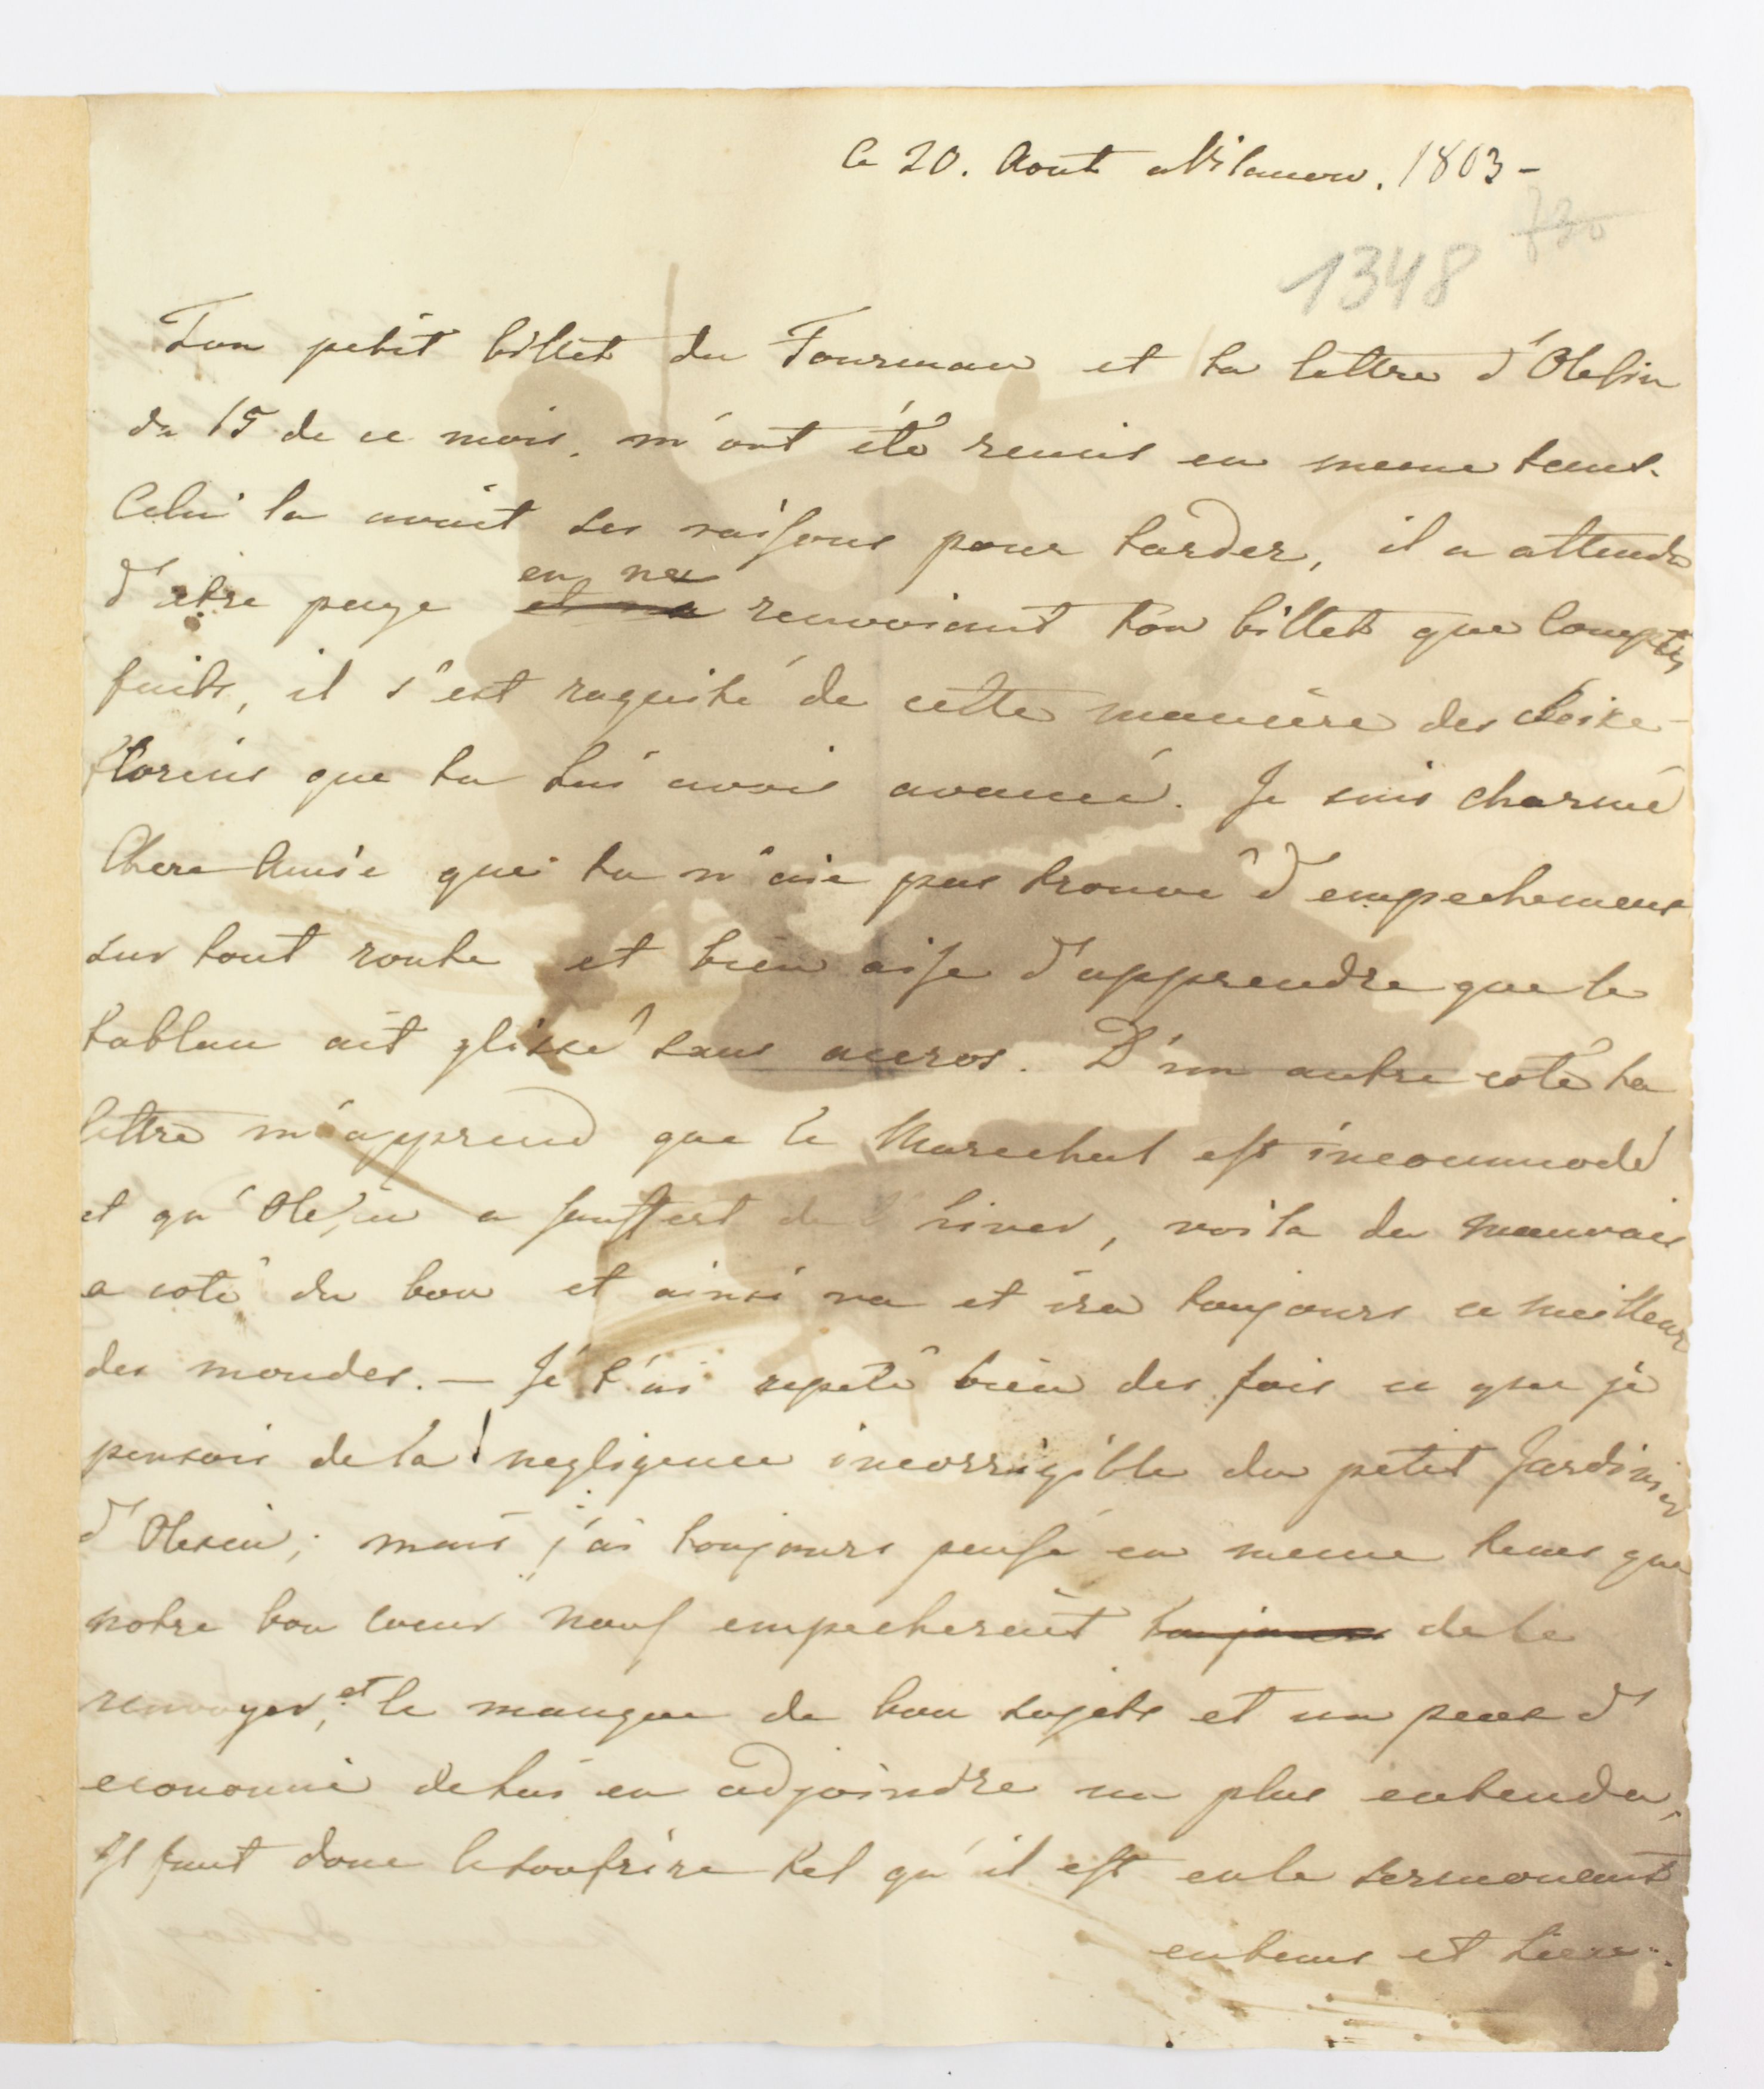 Le 20. Aout a Vilanow. 1803 -
1348 730
Ton petit billet du Fourman et ta lettre d'Olesin
du 15 de ce mois, m'ont été remis en meme tems.
Celui la avait ses raisons pour tarder, il a attendu
d'etre paye en ne et ne renvoiant ton billet que Comptes
faits, il s'est raquité de cette maniere des
florins que tu lui avois avancé. Je suis charmé
Chere Amie que tu n'aie pas trouvé d'empechemens
sur tout route et bien aise d'apprendre que le
tablau ait glissé sans accros. D'un autre coté ta
lettre m'apprend que le Marechal est incommodé
et qu'Olesin a souffert de l'hiver, voila du mauvais
a coté du bon et ainsi va et ira toujours ce meilleur
des mondes. — Je t'ai repeté bien des fois ce que je
pensois de la negligence incorrigible du petit Jardinier
d'Olesin; mais j'ai toujours pensé en meme tems que
notre bon coeur nous empecheroit toujours de le
renvoyer, et le manque de bon sujets et un peu d'
economie de lui en adjoindre un plus entendu,
Il faut donc le soufrire tel qu'il est en le sermonant
en tems et lieu.